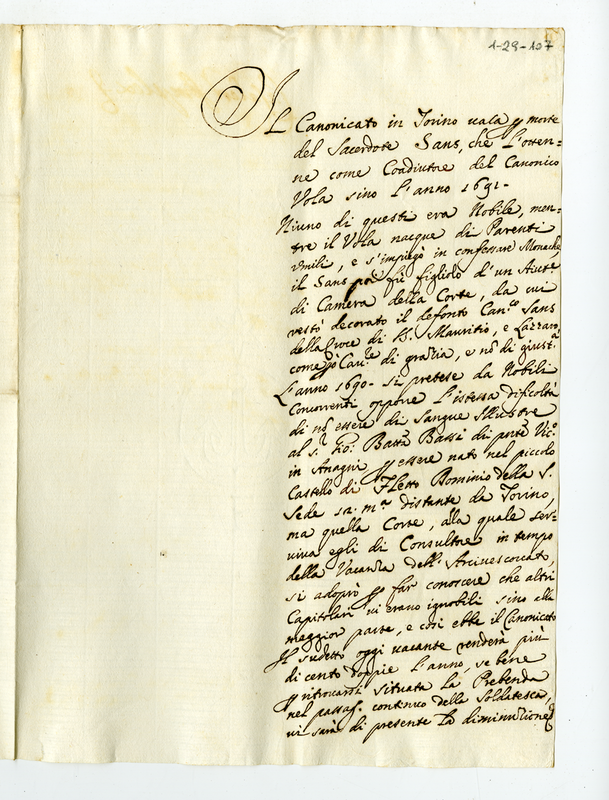 1-29-107
Il Canonicato in Torino vaca per morte
del Sacerdote Sans, che l'otten=
ne come Coadiutore del Canonico
Vola sino l'anno 1691.
Niuno di questi era Nobile, men=
tre il Vola nacque di Parenti
umili, e s'impiegò in confessare Monache,
il Sans poi fù figliolo d'un Aiute
di Camera della Corte, da cui
restò decorato il defonto Can.co Sans
della Croce di S. Mauritio, e Lazzaro
come Cau.re di grazia, e nõ di giust.a
L'anno 1690. si pretese da Nobili
Concorrenti opporre l'istessa dificoltà
di nõ essere di Sangue Illustre
al s.r Gio: Batta Bassi di
in Anagni per essere nato nel piccolo
Castello di Dominio della S.
Sede distante da Torino,
ma quella Corte, alla quale ser=
viva egli di Consultore in tempo
della Vacanza dell'Arcivescovato,
si adoprò per far conoscere che altri
Capitolari vi erano ignobili sino alla
maggior parte, e così ebbe il Canonicato
Il sudetto oggi vacante renderà più
di cento doppie l'anno, se bene
per ritrovarsi situata la Prebenda
nel passag. continuo della Soldatesca,
vi sarà di presente la diminuzione